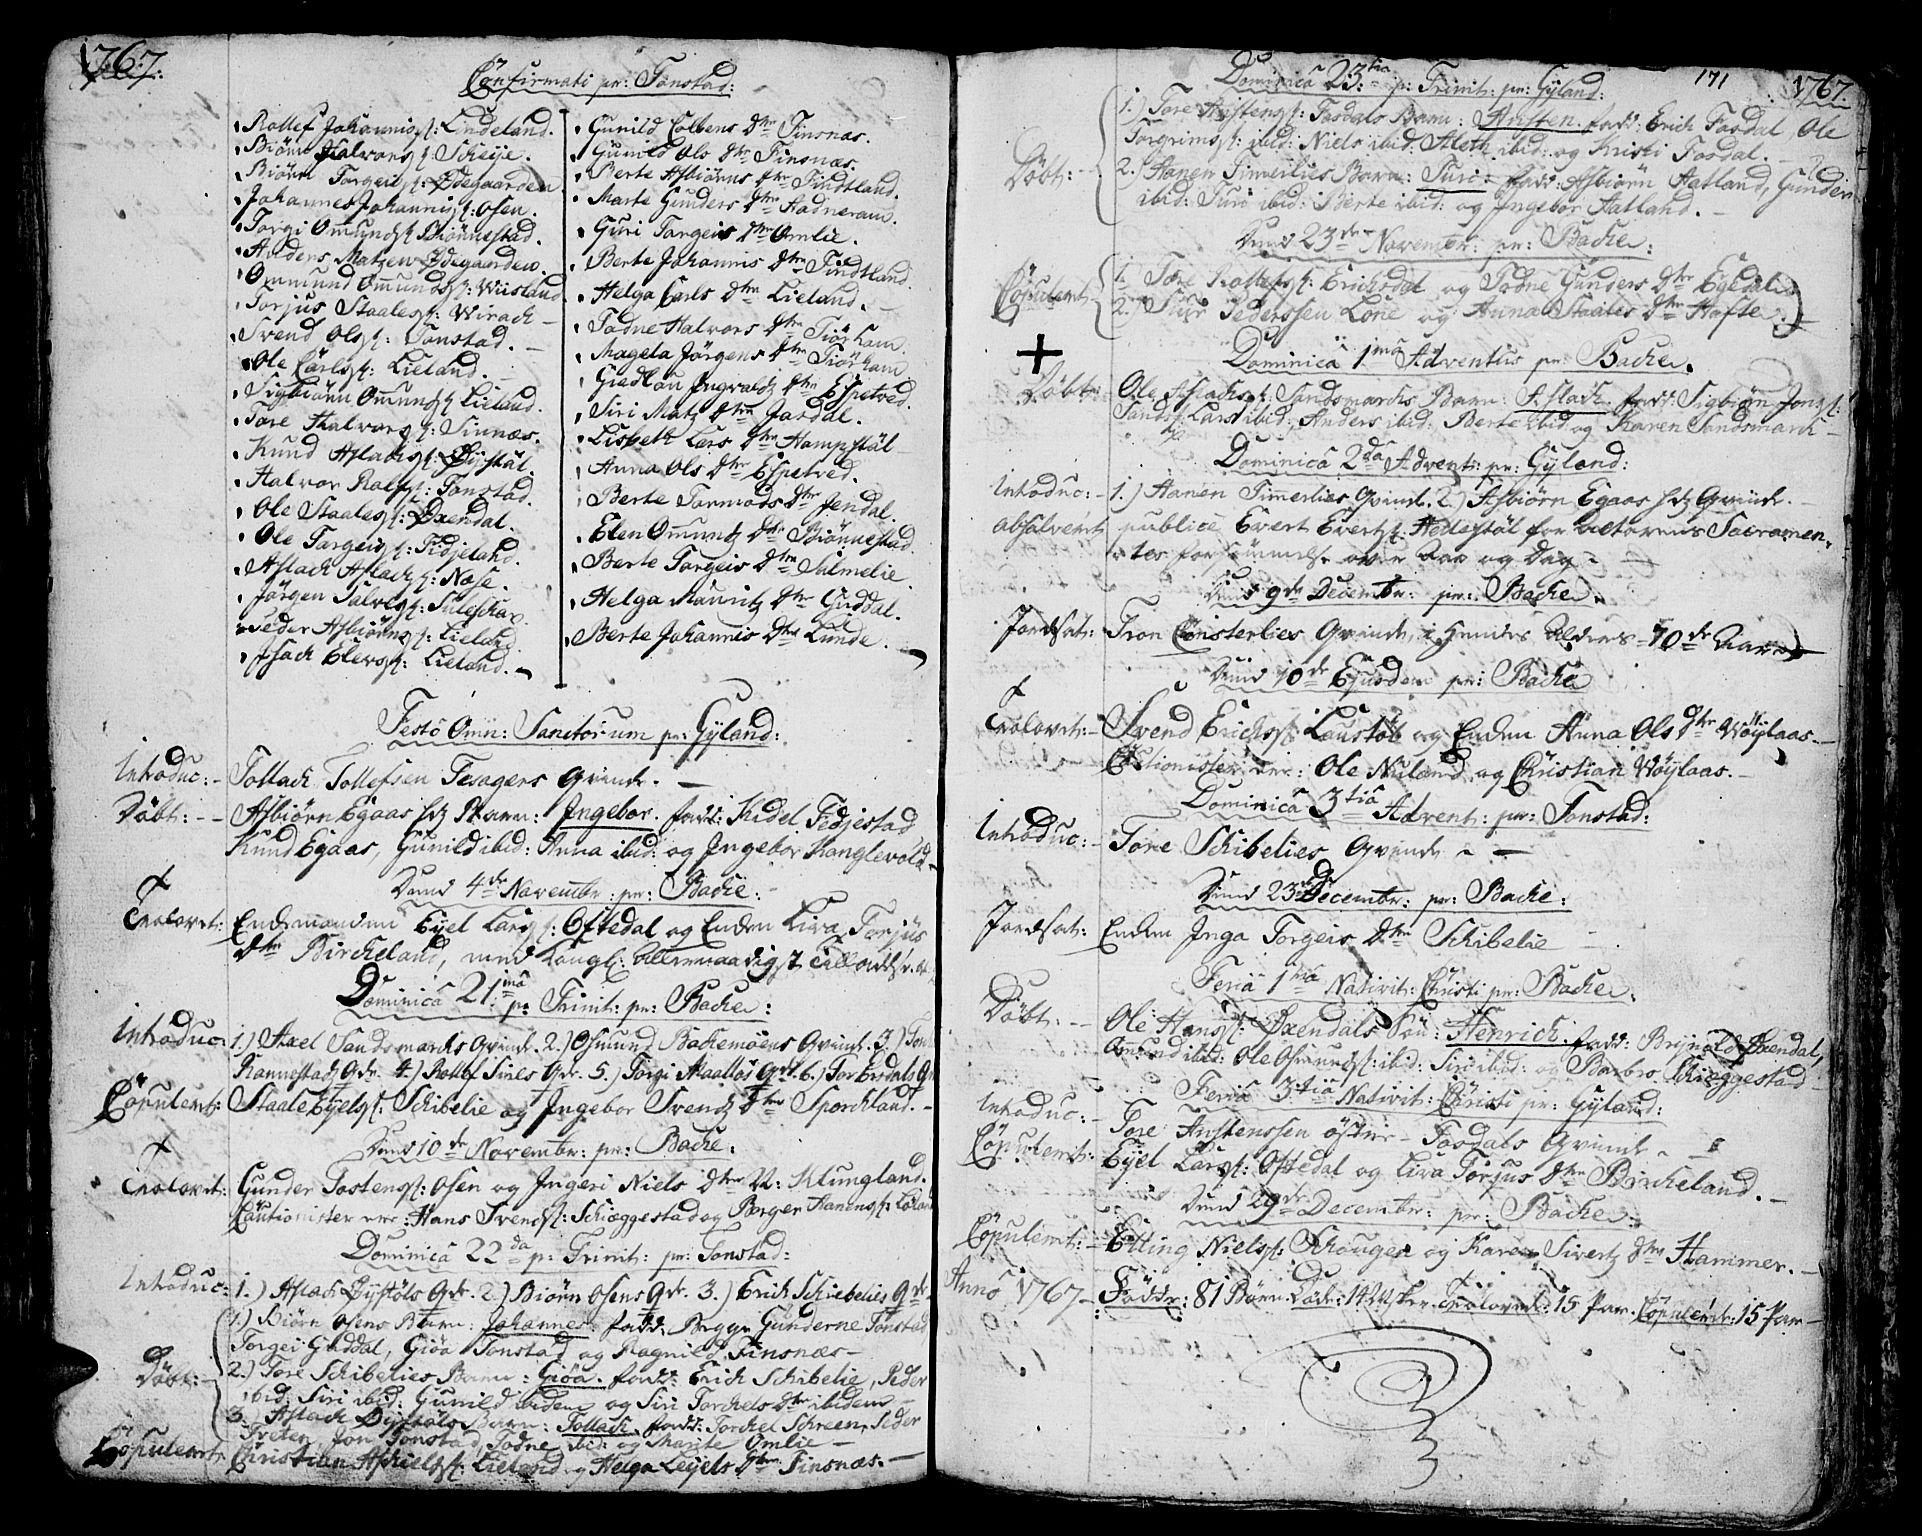 1767.
Confirmati pr: Tonstad:
Rollef Johannis: Lindeland.
Biörn Halvors: Scheije.
Biörn Torgeis: Ødegaarden
Johannes Johannis: Osen.
Torgi Omunds: Biönnestad.
Anders Matzen Ødegaarden.
Ommund Omunds: Wiisland
Torjus Staales: Wirach
Svend Ols: Tonstad.
Ole Carls: Lieland.
Sigbiörn Omunds: Lieland.
Tore Halvors: Sinnæs.
Knud Aslachs: Dystöl.
Halvor Rolfs: Tonstad.
Ole Staales: Øxendal.
Ole Torgeis: Fidjeland.
Aslach Aslachs: Næse.
Jörgen Salves: Suleschar
Peder Asbiörns: Lieland
Isach Elevs: Lieland.
Gunild Colbens Dtr Finsnæs.
Gunild Ols Dtr Finsnæs
Berte Asbiörns Dtr Tindtland.
Marte Gunders Dtr Hadneram.
Guri Torgeis Dtr Omlie.
Berte Johannis Dtr Tindtland
Helga Carls Dtr Lieland.
Todne Halvors Dtr Tiörham
Mageta Jörgens Dtr Tiörham
Giedlou Ingvalds Dtr Espetved.
Siri Matz Dtr Josdal.
Lisbeth Lars Dtr Hompstöl
Anna Ols Dtr Espetved.
Berte Tormods Dtr Jendal.
Elen Omunds Dtr Biönnestad
Berte Torgeis Dtr Salmelie
Helga Mauritz Dtr Guddal.
Berte Johannis Dtr Lunde.
Festô Omn: Sanctorum pr: Gyland:
Introduc: Tollach Tollefsen Tesagers Qvinde.
Döbt: Asbiörn Egaas hs Barn: Ingebor. fadd: Kidel Fedjestad
Knud Egaas, Gunild ibid: Anna ibid: og Ingebor Kanglevold
Dend 4de Novembr: pr: Bache:
Trolovet: Enckemanden Eyel Lars: Oftedal og Enken Liva Torjus
Dtr Birckeland, med Kongl: allernaadigst Tilladelse.
Dominicâ 21mâ p: Trinit: pr: Bache:
Introduc: 1.) Axel Sandsmarchs Qvinde. 2.) Osmund Bachemoens Qvinde. 3.)
Konnestads Qde. 4.) Rollef Sines Qde. 5.) Torgi Maallös Qde. 6.)
Copuleret: Staale Eyels: Schibelie og Ingebor Svends Dtr Sporckland.
Dend 10de Novembr: pr: Bache:
Trolovet: Gunder Tostens: Osen og Ingeri Niels Dtr N: Klungland.
Cautionister ere: Hans Svends: Schiæggestad og Borger Hanens:
Dominicâ 22da p: Trinit: pr: Tonstad:
Introduc: 1.) Aslach Dystöls Qde. 2.) Biörn Osens Qde. 3.) Erich Schibelies Qde
1.) Biörn Osens Barn: Johannes. fadd: Begge Gunderne Tonstad
Torgei Guddal, Giöa Tonstad og Ragnild Finsnæs
Döbt: 2.) Tore Schibelies Barn: Giöa. fadd: Erich Schibelie, Peder
ibid: Siri ibid: Gunild ibidem og Siri Torckels Dtr ibidem
3. Aslach Dystöls Barn: Tollach. fadd: Torckel Schreen, Peder
Treten, Jon Tonstad, Todne ibid: og Marite Omlie
Copuleret: Christian Aschiels: Lieland og Helga Leyels Dtr Finsnæs.
171
1767.
Dominicâ 23tia p: Trinit: pr: Gyland:
Döbt: 1.) Tore Anstens: Fosdals Barn: Ansten. fadd: Erich Fosdal, Ole
Torgrims: ibid: Niels ibid: Aleth ibid: og Kristi Fosdal.
2.) Hanen Timerlies Barn: Turi: fadd: Asbiörn Hatland, Gunder
ibid: Turi ibid: Berte ibid: og Ingebor Hatland.
Dend 23de November: pr: Bache:
Copuleret: 1. Tore Rollefs: Erichsdal og Todne Gunders Dtr Egedal
2. Siur Pederssen Lone og Anna Staales Dtr Hafte.
Dominicâ 1mâ Adventus pr: Bache.
Döbt: Ole Aslachs: Sandsmarchs Barn: Aslach. fadd: Sigbiörn Jons:
Sands: Lars ibid: Anders ibid: Berte ibid: og Karen Sandsmarck
Dominicâ 2da Advent: pr: Gyland:
Introduc: 1.) Hanen Timerlies Qvinde. 2.) Asbiörn Egaas hs Qvinde.
absolveret publice Evert Everts: Hedlestöl for Altarens Sacramen
tes forsömmelse over Aar og Dag.
Dend 9de Decembr: pr: Bache.
Jordfæt: Tron Cönsterlies Qvinde, i hendes Alders 70de Aar
Dend 10de Ejusdem pr: Bache
Trolovet: Svend Erichs: Laustöl og Enken Anna Ols Dtr Höylaas
Cautionister ere: Ole Nuland og Christian Höylaas.
Dominicâ 3tiâ Advent: pr: Tonstad:
Introduc: Tore Schibelies Qvinde
Dend 23de Decembr: pr: Bache:
Jordfæt: Enken Inga Torgeis Dtr Schibelie
Feriâ 1mâ Nativit: Christi pr: Bache.
Döbt: Ole Hans: Øxendals Sön: Henrich. fadd: Brynold Øxendal,
Omund ibid: Ole Osmunds: ibid: Siri ibid: og Barbro Schieggestad
Feriâ 3tiâ Nativit: Christi pr: Gyland:
Introduc: Tore Anstenssen östre Fosdals Qvinde
Copuleret: Eyel Lars: Oftedal og Liva Torjus Dtr Birckeland.
Dend 29de Decembr: pr: Bache:
Copuleret: Elling Niels: Schougen og Karen Siverts Dtr Hammer.
Anno 1767 Födde: 81 Börn. Döde: 14 Trolovede: 15 Par. Copulerede: 15 Par